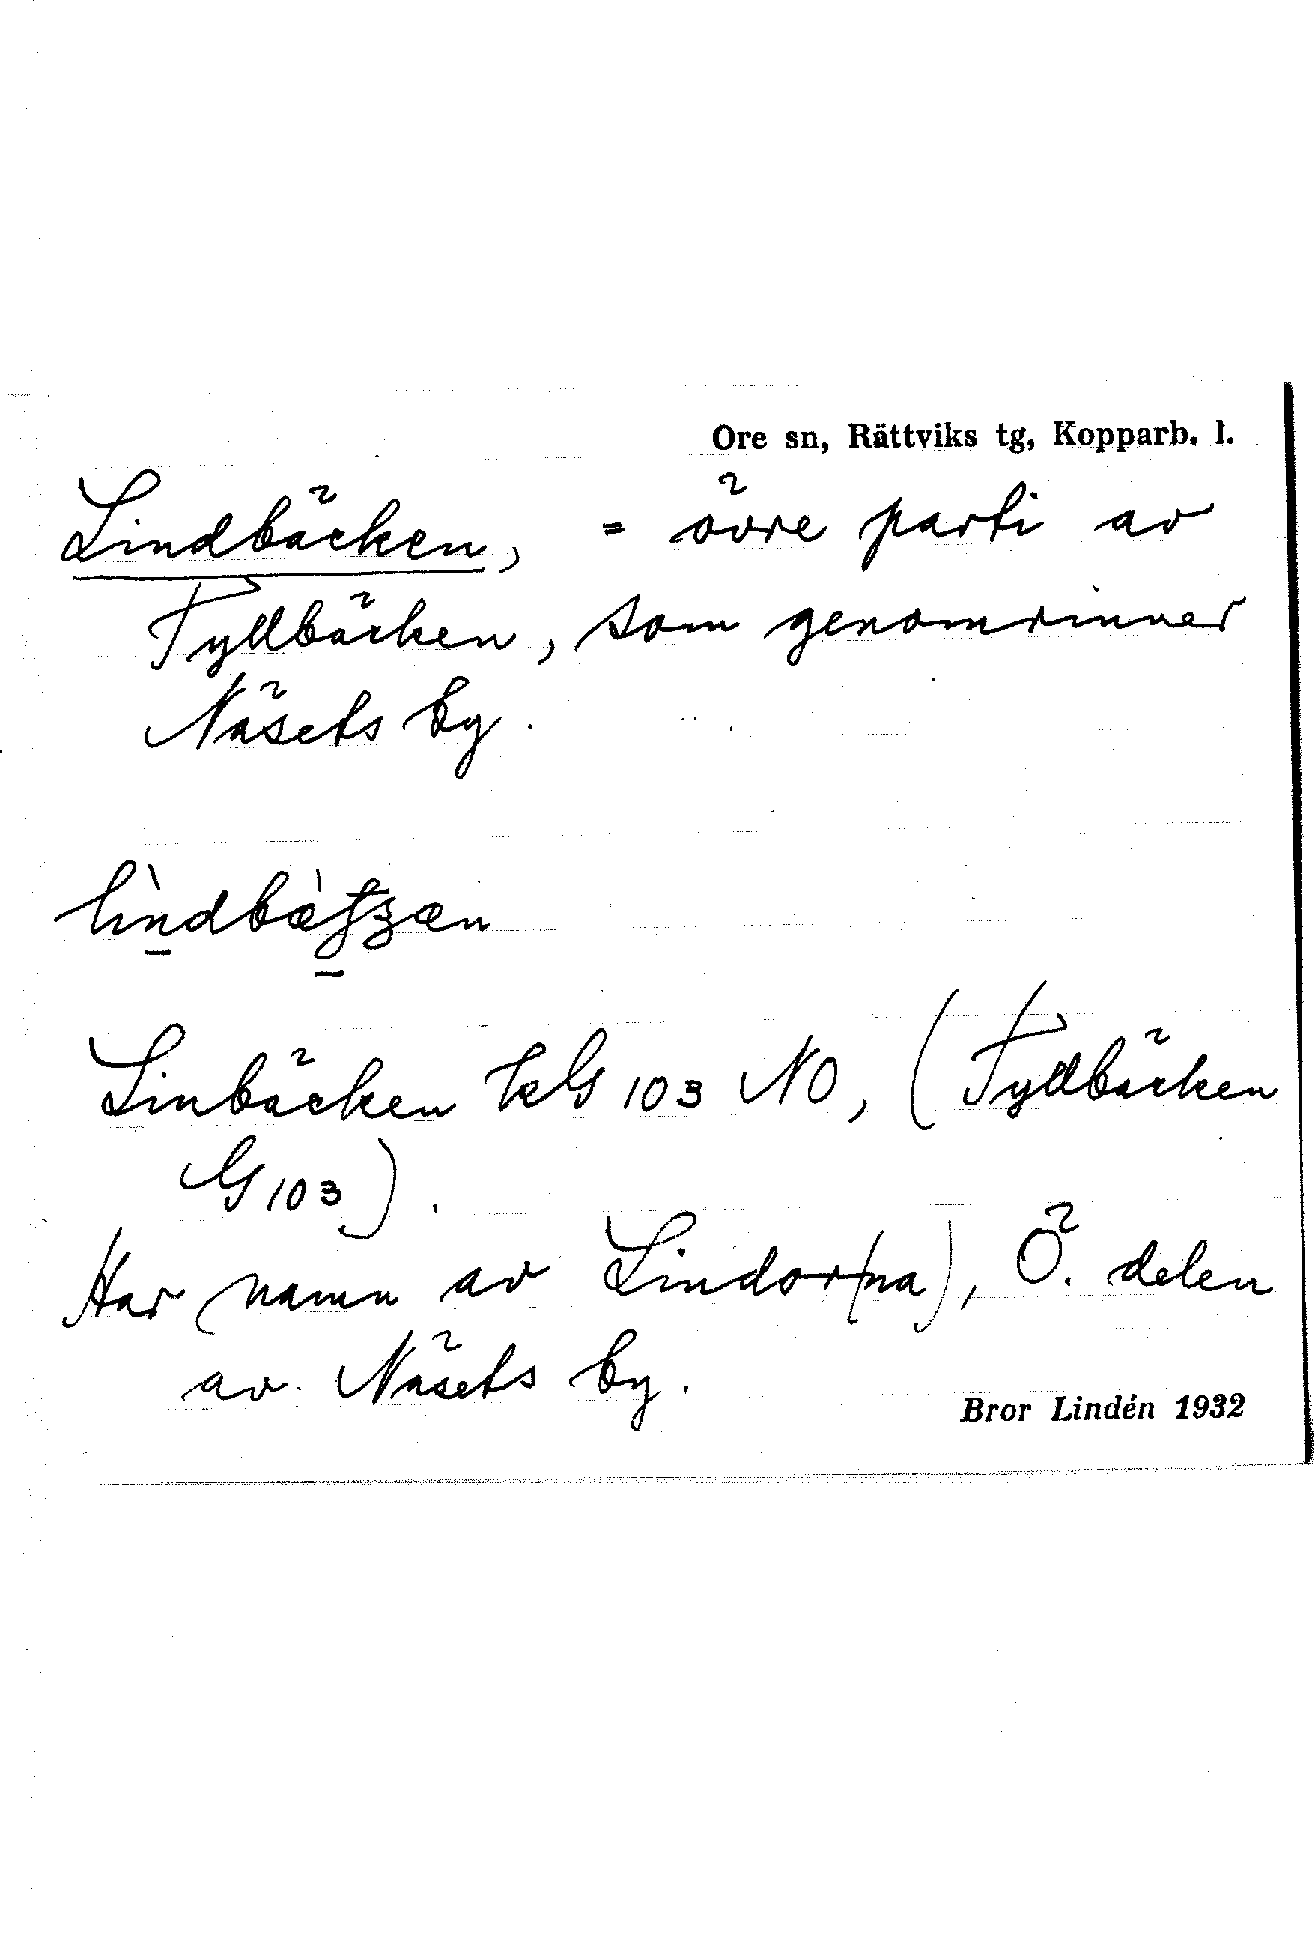 Ore sn, Rättviks tg, Kopparb. l.
Lindbäcken, = övre parti av
Tyllbäcken, som genomrinner
Näsets by.
Linbäcken kG 103 NO, (Tyllbäcken
G 103).
Har namn av Lindor(na), Ö. delen
av Näsets by.
Bror Lindén 1932